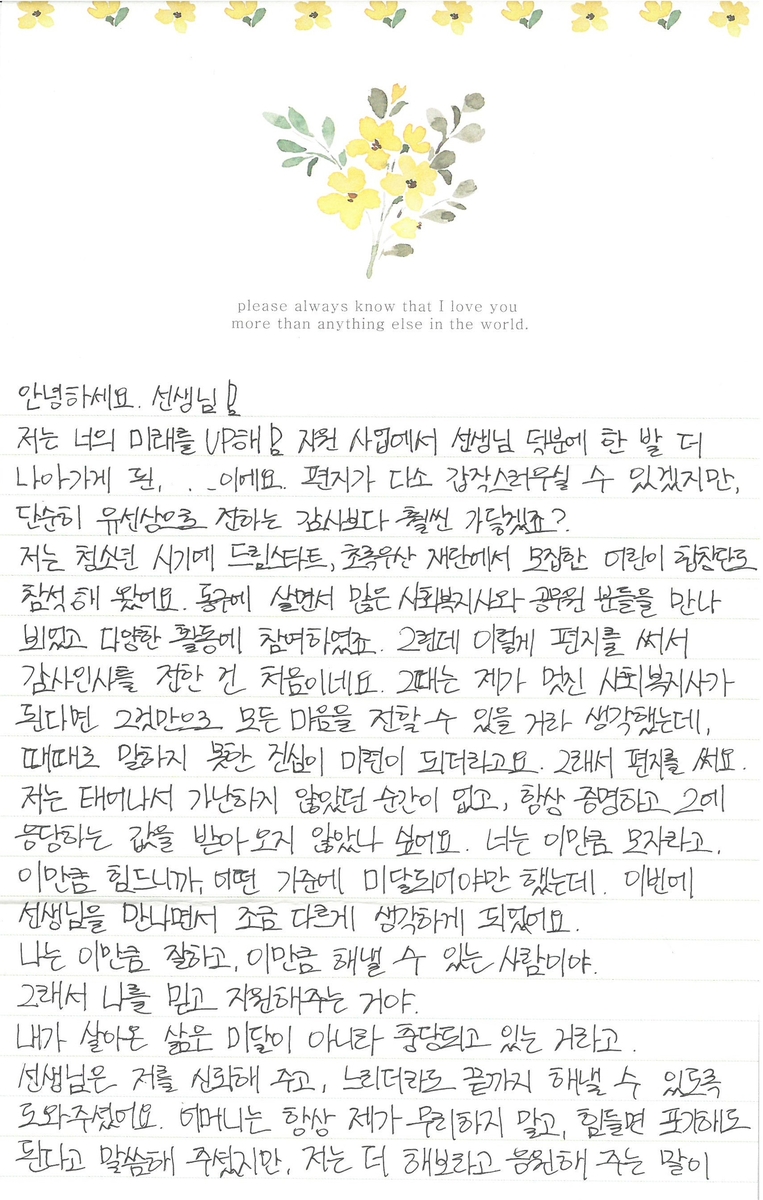 please always know that I love you
more than anything else in the world.
안녕하세요. 선생님!
저는 너의 미래를 UP해! 지원 사업에서 선생님 덕분에 한 발 더
나아가게 된, . ._이에요. 편지가 다소 갑작스러우실 수 있겠지만,
단순히 유선상으로 전하는 감사보다 훨씬 가닿겠죠?
저는 청소년 시기에 드림스타트, 초록우산 재단에서 모집한 어린이 합창단도
참석해 왔어요. 동구에 살면서 많은 사회복지사와 공무원 분들을 만나
뵈었고 다양한 활동에 참여하였죠. 그런데 이렇게 편지를 써서
감사인사를 전한 건 처음이네요. 그때는 제가 멋진 사회복지사가
된다면 그것만으로 모든 마음을 전할 수 있을 거라 생각했는데,
때때로 말하지 못한 진심이 미련이 되더라고요. 그래서 편지를 써요.
저는 태어나서 가난하지 않았던 순간이 없고, 항상 증명하고 그에
응당하는 값을 받아오지 않았나 싶어요. 너는 이만큼 모자라고,
이만큼 힘드니까, 어떤 기준에 미달되어야만 했는데. 이번에
선생님을 만나면서 조금 다르게 생각하게 되었어요.
나는 이만큼 잘하고, 이만큼 해낼 수 있는 사람이야.
그래서 나를 믿고 지원해주는 거야.
내가 살아온 삶은 미달이 아니라 충당되고 있는 거라고.
선생님은 저를 신뢰해 주고, 느리더라도 끝까지 해낼 수 있도록
도와주셨어요. 어머니는 항상 제가 무리하지 말고, 힘들면 포기해도
된다고 말씀해 주셨지만, 저는 더 해보라고 응원해 주는 말이